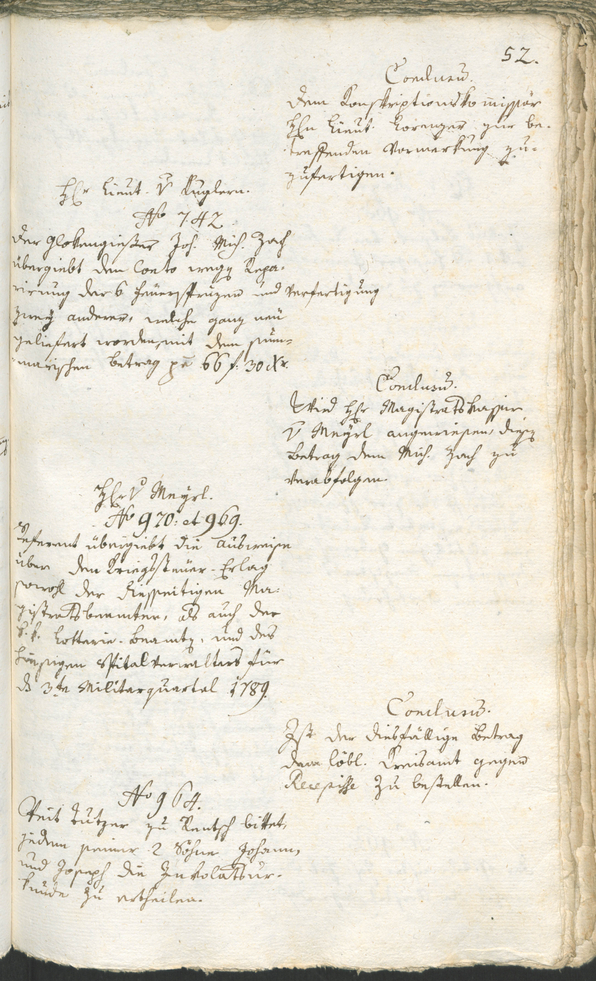 52.
Conclusum.
Dem Konskriptionskommissär
Hrn Lieut. Lorenzer zur be-
treffenden Vormerkung zu-
zufertigen.
Hr Lieut. v Kuglern.
No 742
Der Glokengießer Joh. Mich. Zach
übergiebt den Conto wegen Repa-
rirung der 6 Feuerspritzen und Verfertigung
zwey anderer, welche ganz neu
geliefert worden, mit dem sum-
marischen Betrag pr 66 f. 30 Xr.
Conclusum.
Wird Hr Magistratskassier
v Meyrl angewiesen, diesen
Betrag dem Mich. Zach zu
verabfolgen.
Hr v Meyrl.
No 970: et 969.
Referent übergiebt die Ausweise
über den Kriegssteuer-Erlag
sowohl der diesseitigen Ma-
gistratsbeamten, als auch der
k. k. Lotterie-Beamten, und des
hiesigen Spitalverwalters für
das 3te Militarquartal 1789.
Conclusum.
Ist der diesfällige Betrag
dem löbl. Kreisamt gegen
Recepisse zu bestellen.
No 964.
Veit Lutzer zu Rentsch bittet,
jedem seiner 2 Söhne Johann,
und Joseph die Inkolatsur-
kunde zu ertheilen.